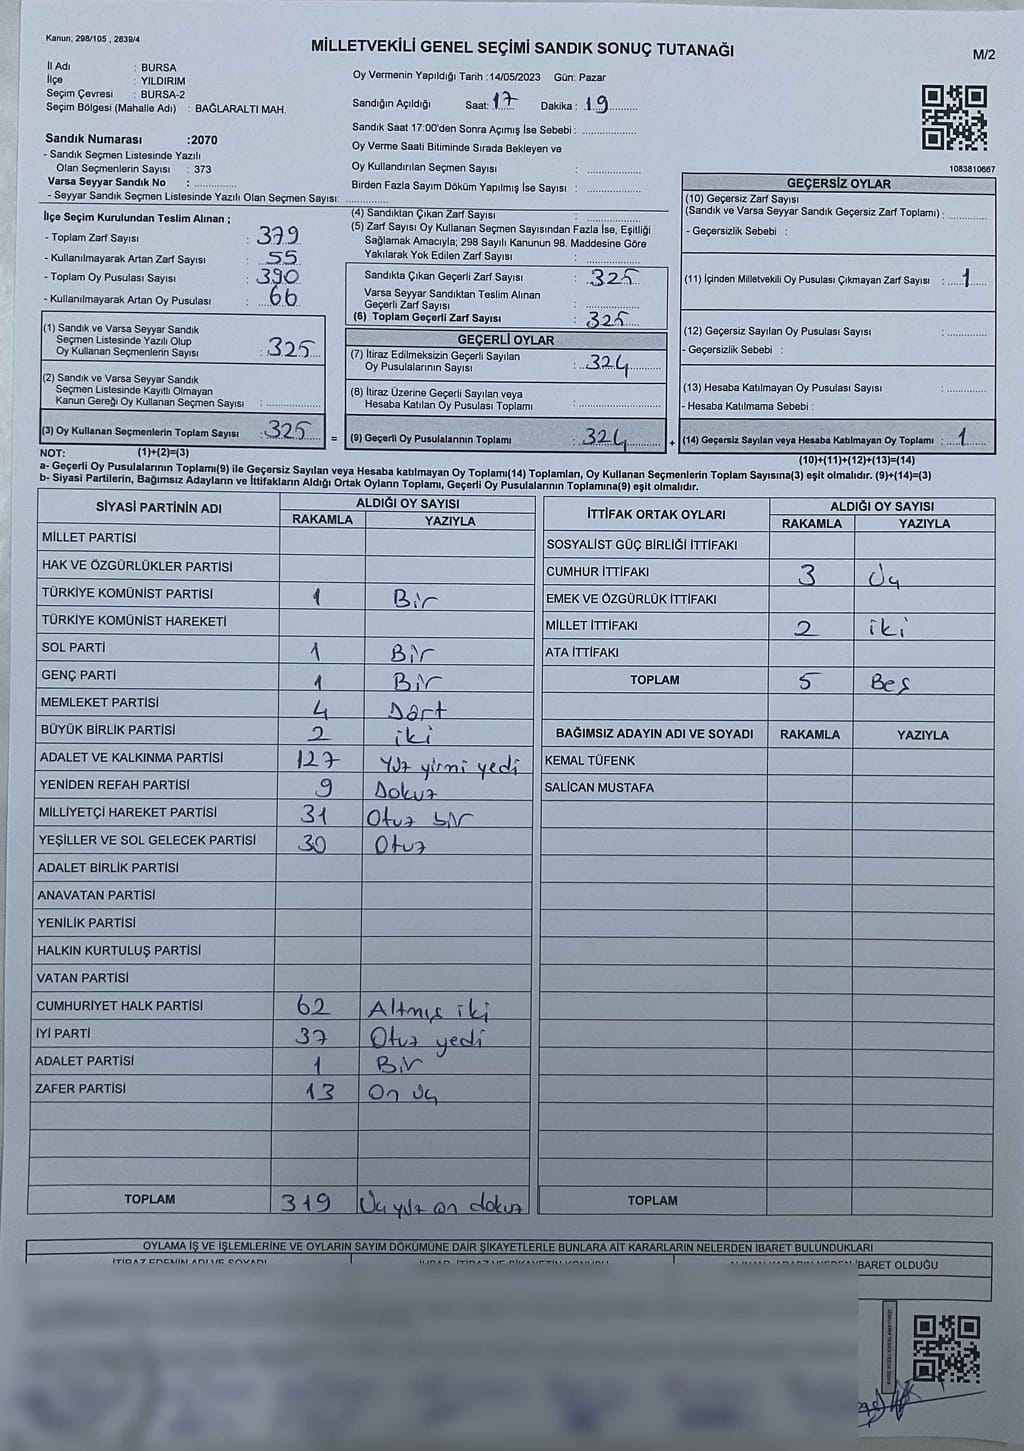 Kanun; 298/105 , 2839/4
MİLLETVEKİLİ GENEL SEÇİMİ SANDIK SONUÇ TUTANAĞI
M/2
İl Adı : BURSA
İlçe : YILDIRIM
Seçim Çevresi : BURSA-2
Seçim Bölgesi (Mahalle Adı) : BAĞLARALTI MAH.
Oy Vermenin Yapıldığı Tarih :14/05/2023 Gün: Pazar
Sandığın Açıldığı Saat: 17 Dakika : 19
Sandık Saat 17:00'den Sonra Açımış İse Sebebi :
Oy Verme Saati Bitiminde Sırada Bekleyen ve
Oy Kullandırılan Seçmen Sayısı :
Birden Fazla Sayım Döküm Yapılmış İse Sayısı :
1083810667
Sandık Numarası :2070
- Sandık Seçmen Listesinde Yazılı
Olan Seçmenlerin Sayısı : 373
Varsa Seyyar Sandık No :
- Seyyar Sandık Seçmen Listesinde Yazılı Olan Seçmen Sayısı:
İlçe Seçim Kurulundan Teslim Alınan ;
- Toplam Zarf Sayısı : 379
- Kullanılmayarak Artan Zarf Sayısı : 55
- Toplam Oy Pusulası Sayısı : 390
- Kullanılmayarak Artan Oy Pusulası : 66
(1) Sandık ve Varsa Seyyar Sandık
Seçmen Listesinde Yazılı Olup
Oy Kullanan Seçmenlerin Sayısı : 325
(2) Sandık ve Varsa Seyyar Sandık
Seçmen Listesinde Kayıtlı Olmayan
Kanun Gereği Oy Kullanan Seçmen Sayısı :
(3) Oy Kullanan Seçmenlerin Toplam Sayısı : 325
(4) Sandıktan Çıkan Zarf Sayısı :
(5) Zarf Sayısı Oy Kullanan Seçmen Sayısından Fazla İse, Eşitliği
Sağlamak Amacıyla; 298 Sayılı Kanunun 98. Maddesine Göre
Yakılarak Yok Edilen Zarf Sayısı :
Sandıkta Çıkan Geçerli Zarf Sayısı : 325
Varsa Seyyar Sandıktan Teslim Alınan
Geçerli Zarf Sayısı :
(6) Toplam Geçerli Zarf Sayısı : 325
GEÇERLİ OYLAR
(7) İtiraz Edilmeksizin Geçerli Sayılan
Oy Pusulalarının Sayısı : 324
(8) İtiraz Üzerine Geçerli Sayılan veya
Hesaba Katılan Oy Pusulası Toplamı :
= (9) Geçerli Oy Pusulalarının Toplamı : 324
GEÇERSİZ OYLAR
(10) Geçersiz Zarf Sayısı
(Sandık ve Varsa Seyyar Sandık Geçersiz Zarf Toplamı) :
- Geçersizlik Sebebi :
(11) İçinden Milletvekili Oy Pusulası Çıkmayan Zarf Sayısı : 1
(12) Geçersiz Sayılan Oy Pusulası Sayısı :
- Geçersizlik Sebebi :
(13) Hesaba Katılmayan Oy Pusulası Sayısı :
- Hesaba Katılmama Sebebi :
+ (14) Geçersiz Sayılan veya Hesaba Katılmayan Oy Toplamı : 1
NOT: (1)+(2)=(3)
(10)+(11)+(12)+(13)=(14)
a- Geçerli Oy Pusulalarının Toplamı(9) ile Geçersiz Sayılan veya Hesaba katılmayan Oy Toplamı(14) Toplamları, Oy Kullanan Seçmenlerin Toplam Sayısına(3) eşit olmalıdır. (9)+(14)=(3)
b- Siyasi Partilerin, Bağımsız Adayların ve İttifakların Aldığı Ortak Oyların Toplamı, Geçerli Oy Pusulalarının Toplamına(9) eşit olmalıdır.
SİYASİ PARTİNİN ADI
ALDIĞI OY SAYISI
RAKAMLA YAZIYLA
MİLLET PARTİSİ
HAK VE ÖZGÜRLÜKLER PARTİSİ
TÜRKİYE KOMÜNİST PARTİSİ 1 Bir
TÜRKİYE KOMÜNİST HAREKETİ
SOL PARTİ 1 Bir
GENÇ PARTİ 1 Bir
MEMLEKET PARTİSİ 4 Dört
BÜYÜK BİRLİK PARTİSİ 2 iki
ADALET VE KALKINMA PARTİSİ 127 Yüz yirmi yedi
YENİDEN REFAH PARTİSİ 9 Dokuz
MİLLİYETÇİ HAREKET PARTİSİ 31 Otuz bir
YEŞİLLER VE SOL GELECEK PARTİSİ 30 Otuz
ADALET BİRLİK PARTİSİ
ANAVATAN PARTİSİ
YENİLİK PARTİSİ
HALKIN KURTULUŞ PARTİSİ
VATAN PARTİSİ
CUMHURİYET HALK PARTİSİ 62 Altmış iki
İYİ PARTİ 37 Otuz yedi
ADALET PARTİSİ 1 Bir
ZAFER PARTİSİ 13 On üç
TOPLAM 319 Üçyüz on dokuz
İTTİFAK ORTAK OYLARI
ALDIĞI OY SAYISI
RAKAMLA YAZIYLA
SOSYALİST GÜÇ BİRLİĞİ İTTİFAKI
CUMHUR İTTİFAKI 3 Üç
EMEK VE ÖZGÜRLÜK İTTİFAKI
MİLLET İTTİFAKI 2 iki
ATA İTTİFAKI
TOPLAM 5 Beş
BAĞIMSIZ ADAYIN ADI VE SOYADI RAKAMLA YAZIYLA
KEMAL TÜFENK
SALİCAN MUSTAFA
TOPLAM
OYLAMA İŞ VE İŞLEMLERİNE VE OYLARIN SAYIM DÖKÜMÜNE DAİR ŞİKAYETLERLE BUNLARA AİT KARARLARIN NELERDEN İBARET BULUNDUKLARI
İTİRAZ EDENİN ADI VE SOYADI
İBARET OLDUĞU